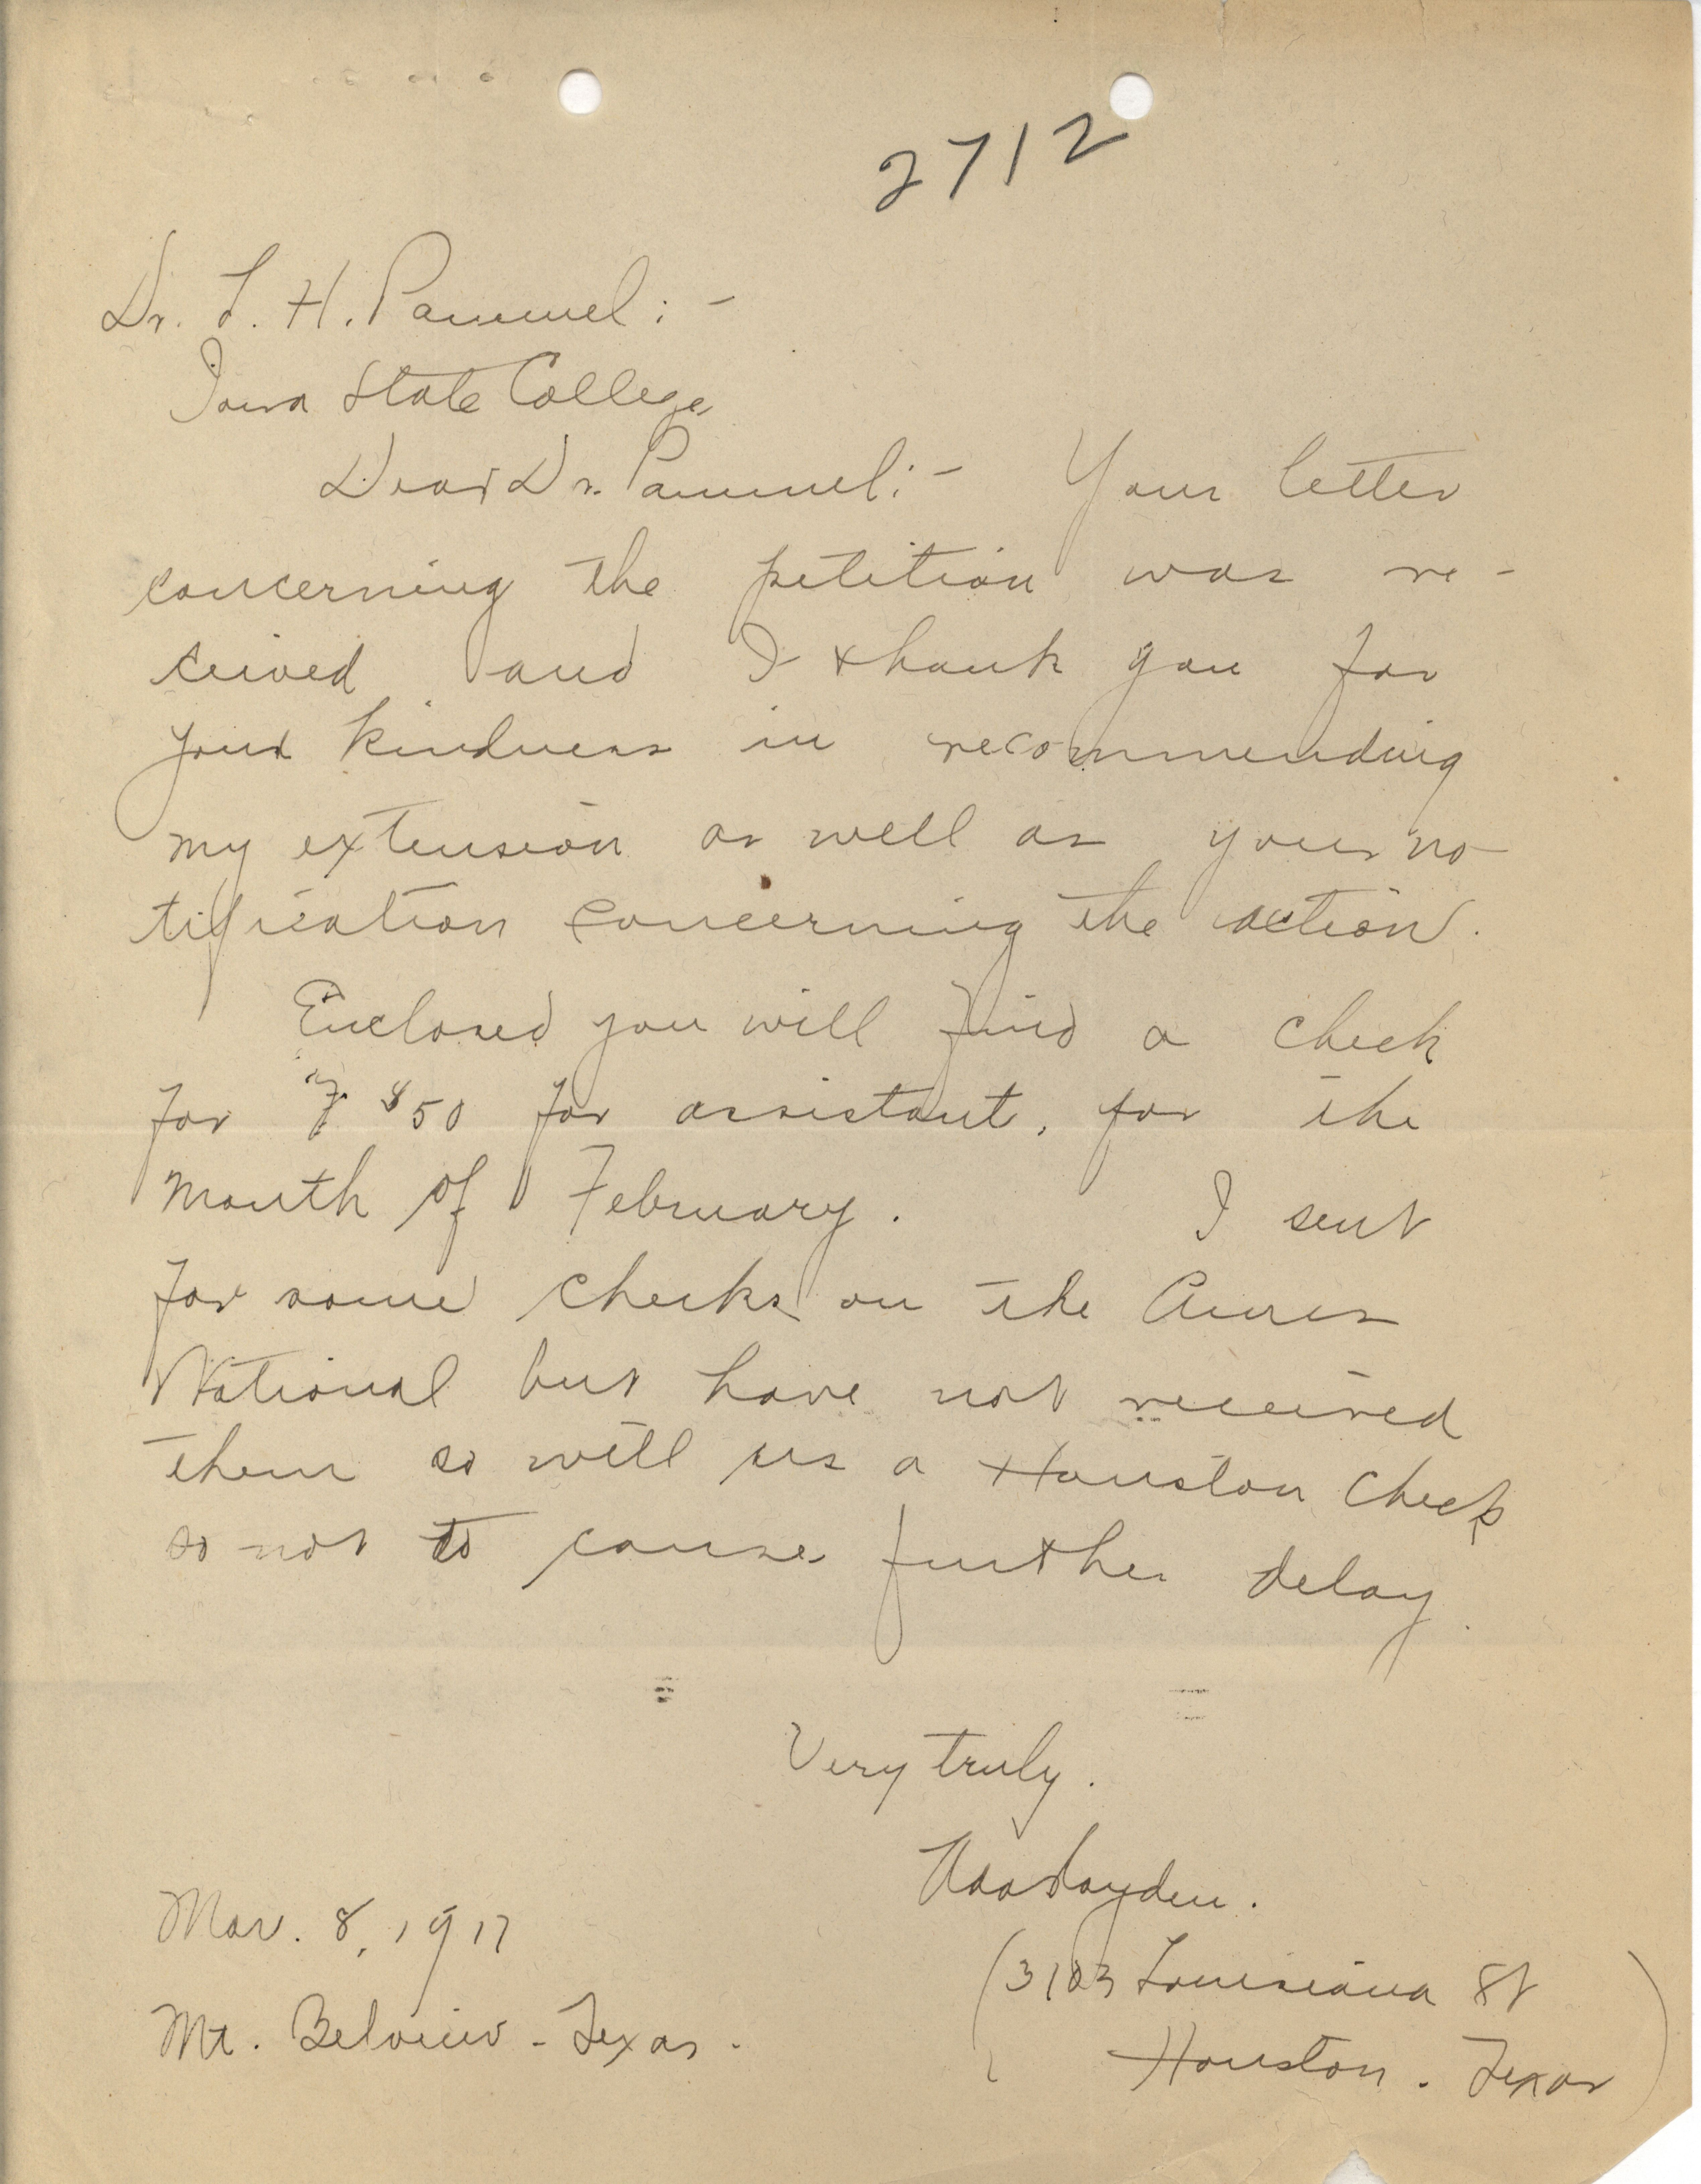 2712
Dr. L. H. Pammel: -
Iowa State College
Dear Dr. Pammel: - Your letter
concerning the petition was re-
ceived and I thank you for
your kindness in recommending
my extension as well as your no-
tification concerning the action.
Enclosed you will find a check
for $50 for assistant, for the
month of February. I sent
for some checks on the Ames
National but have not received
them so will us a Houston check
so not to cause further delay.
Very truly.
Ada Hayden.
Mar. 8, 1917
(3103 Louisiana St
Mt. Belview - Texas.
Houston. Texas)